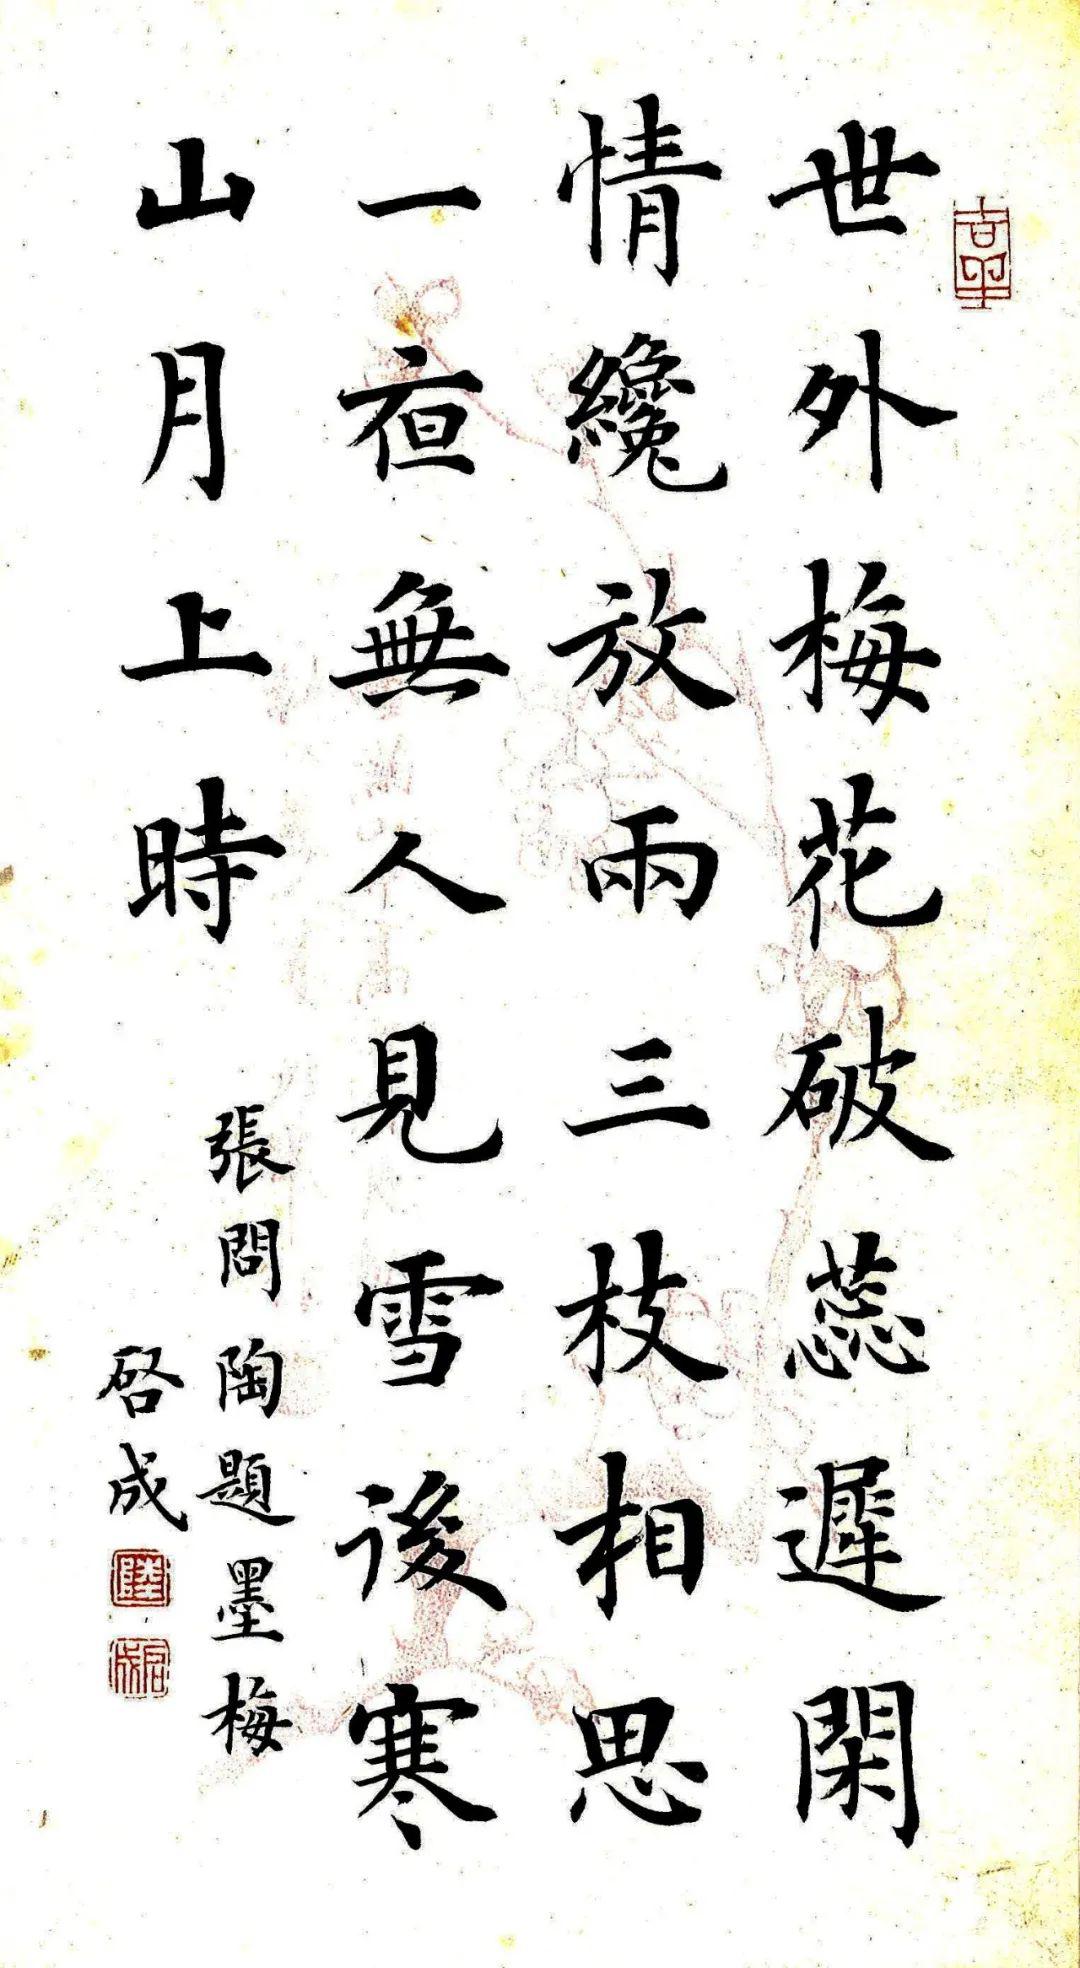 世外梅花破蕊遲閑
情纔放兩三枝相思
一夜無人見雪後寒
山月上時
張問陶題墨梅
啓成